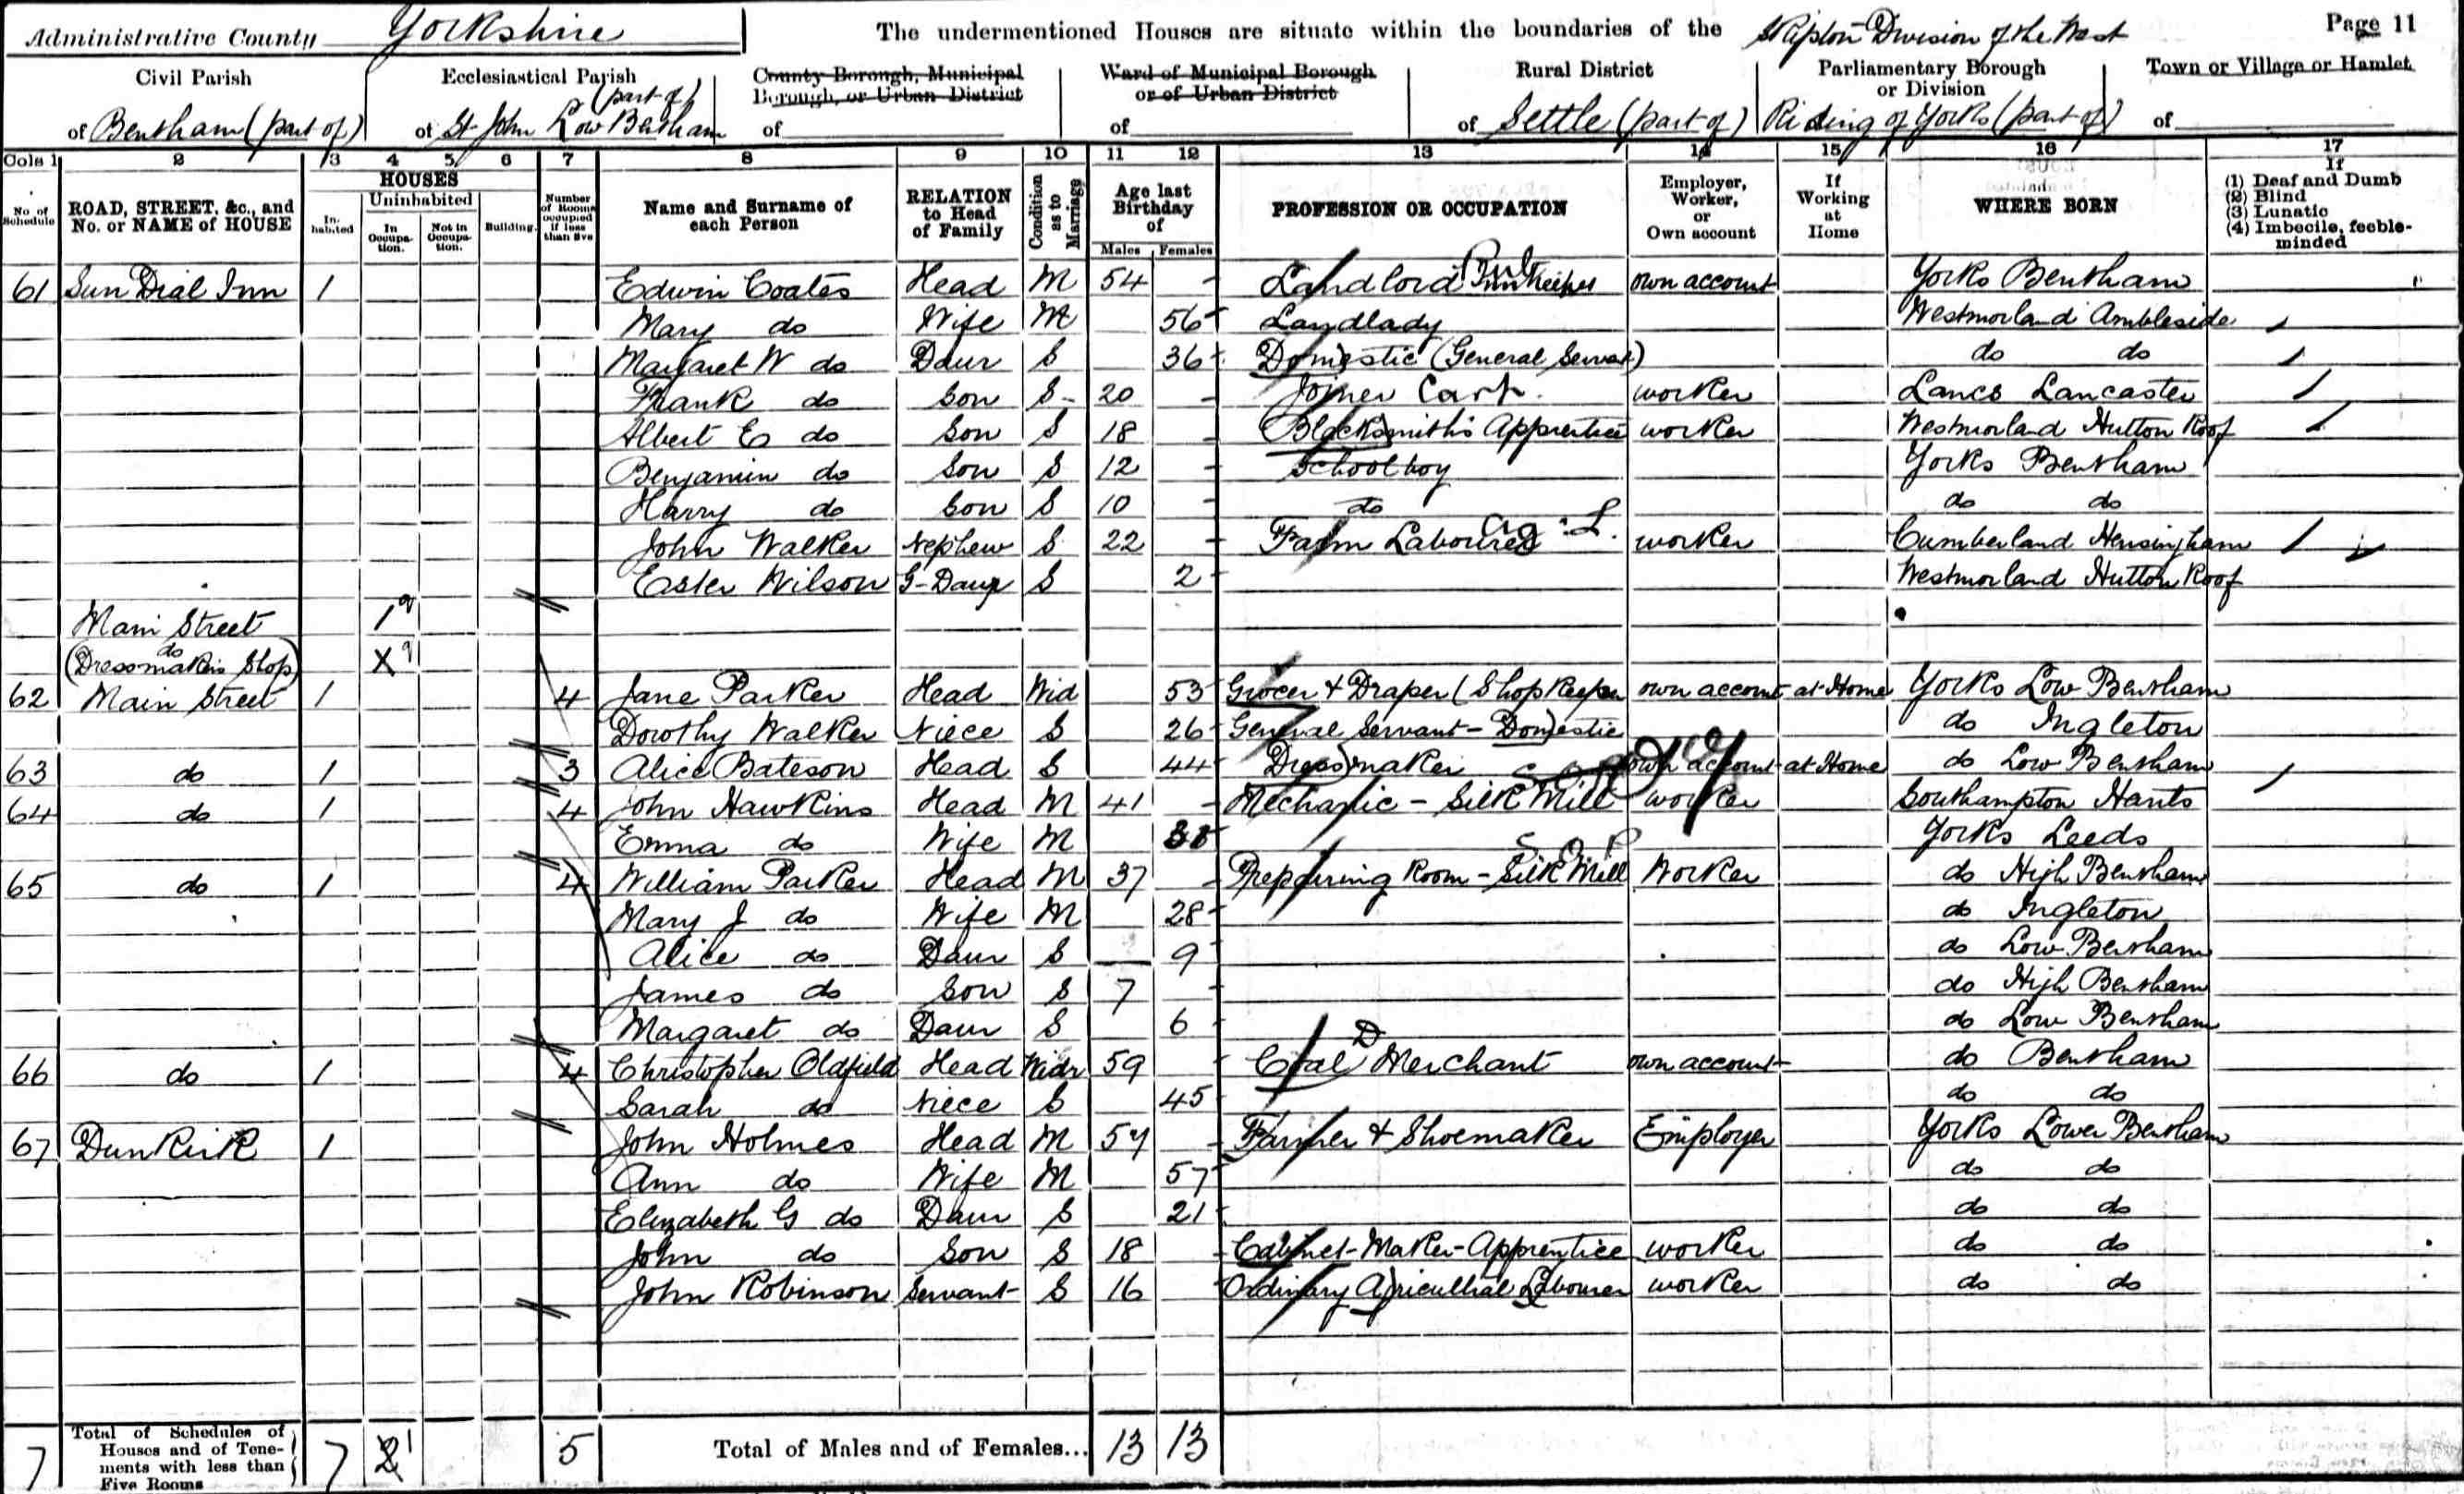 Administrative County Yorkshire The undermentioned Houses are situate within the boundaries of the Page 11
Civil Parish Ecclesiastical Parish County Borough, Municipal Borough, or Urban District Ward of Municipal Borough or of Urban District Rural District Parliamentary Borough or Division Town or Village or Hamlet
of Bentham (part of) of St John Low Bentham (part of) of of of Settle (part of) Skipton Division of the West Riding of Yorks (part of) of
Cols 1 2 3 4 5 6 7 8 9 10 11 12 13 14 15 16 17
No. of Schedule ROAD, STREET, &c., and No. or NAME of HOUSE HOUSES Inhabited Uninhabited In Occupation. Not in Occupation. Building. Number of Rooms occupied if less than five Name and Surname of each Person RELATION to Head of Family Condition as to Marriage Age last Birthday of Males Females PROFESSION OR OCCUPATION Employer, Worker, or Own account If Working at Home WHERE BORN If (1) Deaf and Dumb (2) Blind (3) Lunatic (4) Imbecile, feeble-minded
61 Sun Dial Inn 1 Edwin Coates Head M 54 Landlord Innkeeper Pub own account Yorks Bentham
Mary do Wife M 56 Landlady Westmorland Ambleside
Margaret W do Daur S 36 Domestic (General Servat) do do
Frank do Son S 20 Joiner Carp. worker Lancs Lancaster
Albert E do Son S 18 Blacksmith's Apprentice worker Westmorland Hutton Roof
Benjamin do Son S 12 Schoolboy Yorks Bentham
Harry do Son S 10 do do do
John Walker Nephew S 22 Farm Labourer Ag. L. worker Cumberland Hensingham
Ester Wilson G-Daur S 2 Westmorland Hutton Roof
Main Street 1
do (Dressmakers Shop) X
62 Main Street 1 4 Jane Parker Head Wid 53 Grocer & Draper (Shopkeeper own account at Home Yorks Low Bentham
Dorothy Walker Niece S 26 General Servant - Domestic do Ingleton
63 do 1 3 Alice Bateson Head S 44 Dressmaker own account at Home do Low Bentham
64 do 1 4 John Hawkins Head M 41 Mechanic - Silk Mill worker Southampton Hants
Emma do Wife M Yorks Leeds
65 do 1 4 William Parker Head M 37 Preparing Room - Silk Mill Worker do High Bentham
Mary J do Wife M 28 do Ingleton
Alice do Daur S 9 do Low Bentham
James do Son S 7 do High Bentham
Margaret do Daur S 6 do Low Bentham
66 do 1 4 Christopher Oldfield Head Widr 59 Coal Merchant D own account do Bentham
Sarah do Niece S 45 do do
67 Dunkirk 1 John Holmes Head M 57 Farmer & Shoemaker Employer Yorks Lower Bentham
Ann do Wife M 57 do do
Elizabeth G do Daur S 21 do do
John do Son S 18 Cabinet-Maker-Apprentice worker do do
John Robinson Servant S 16 Ordinary Agricultral Labourer worker do do
7 Total of Schedules of Houses and of Tenements with less than Five Rooms 7 2 1 5 Total of Males and of Females... 13 13